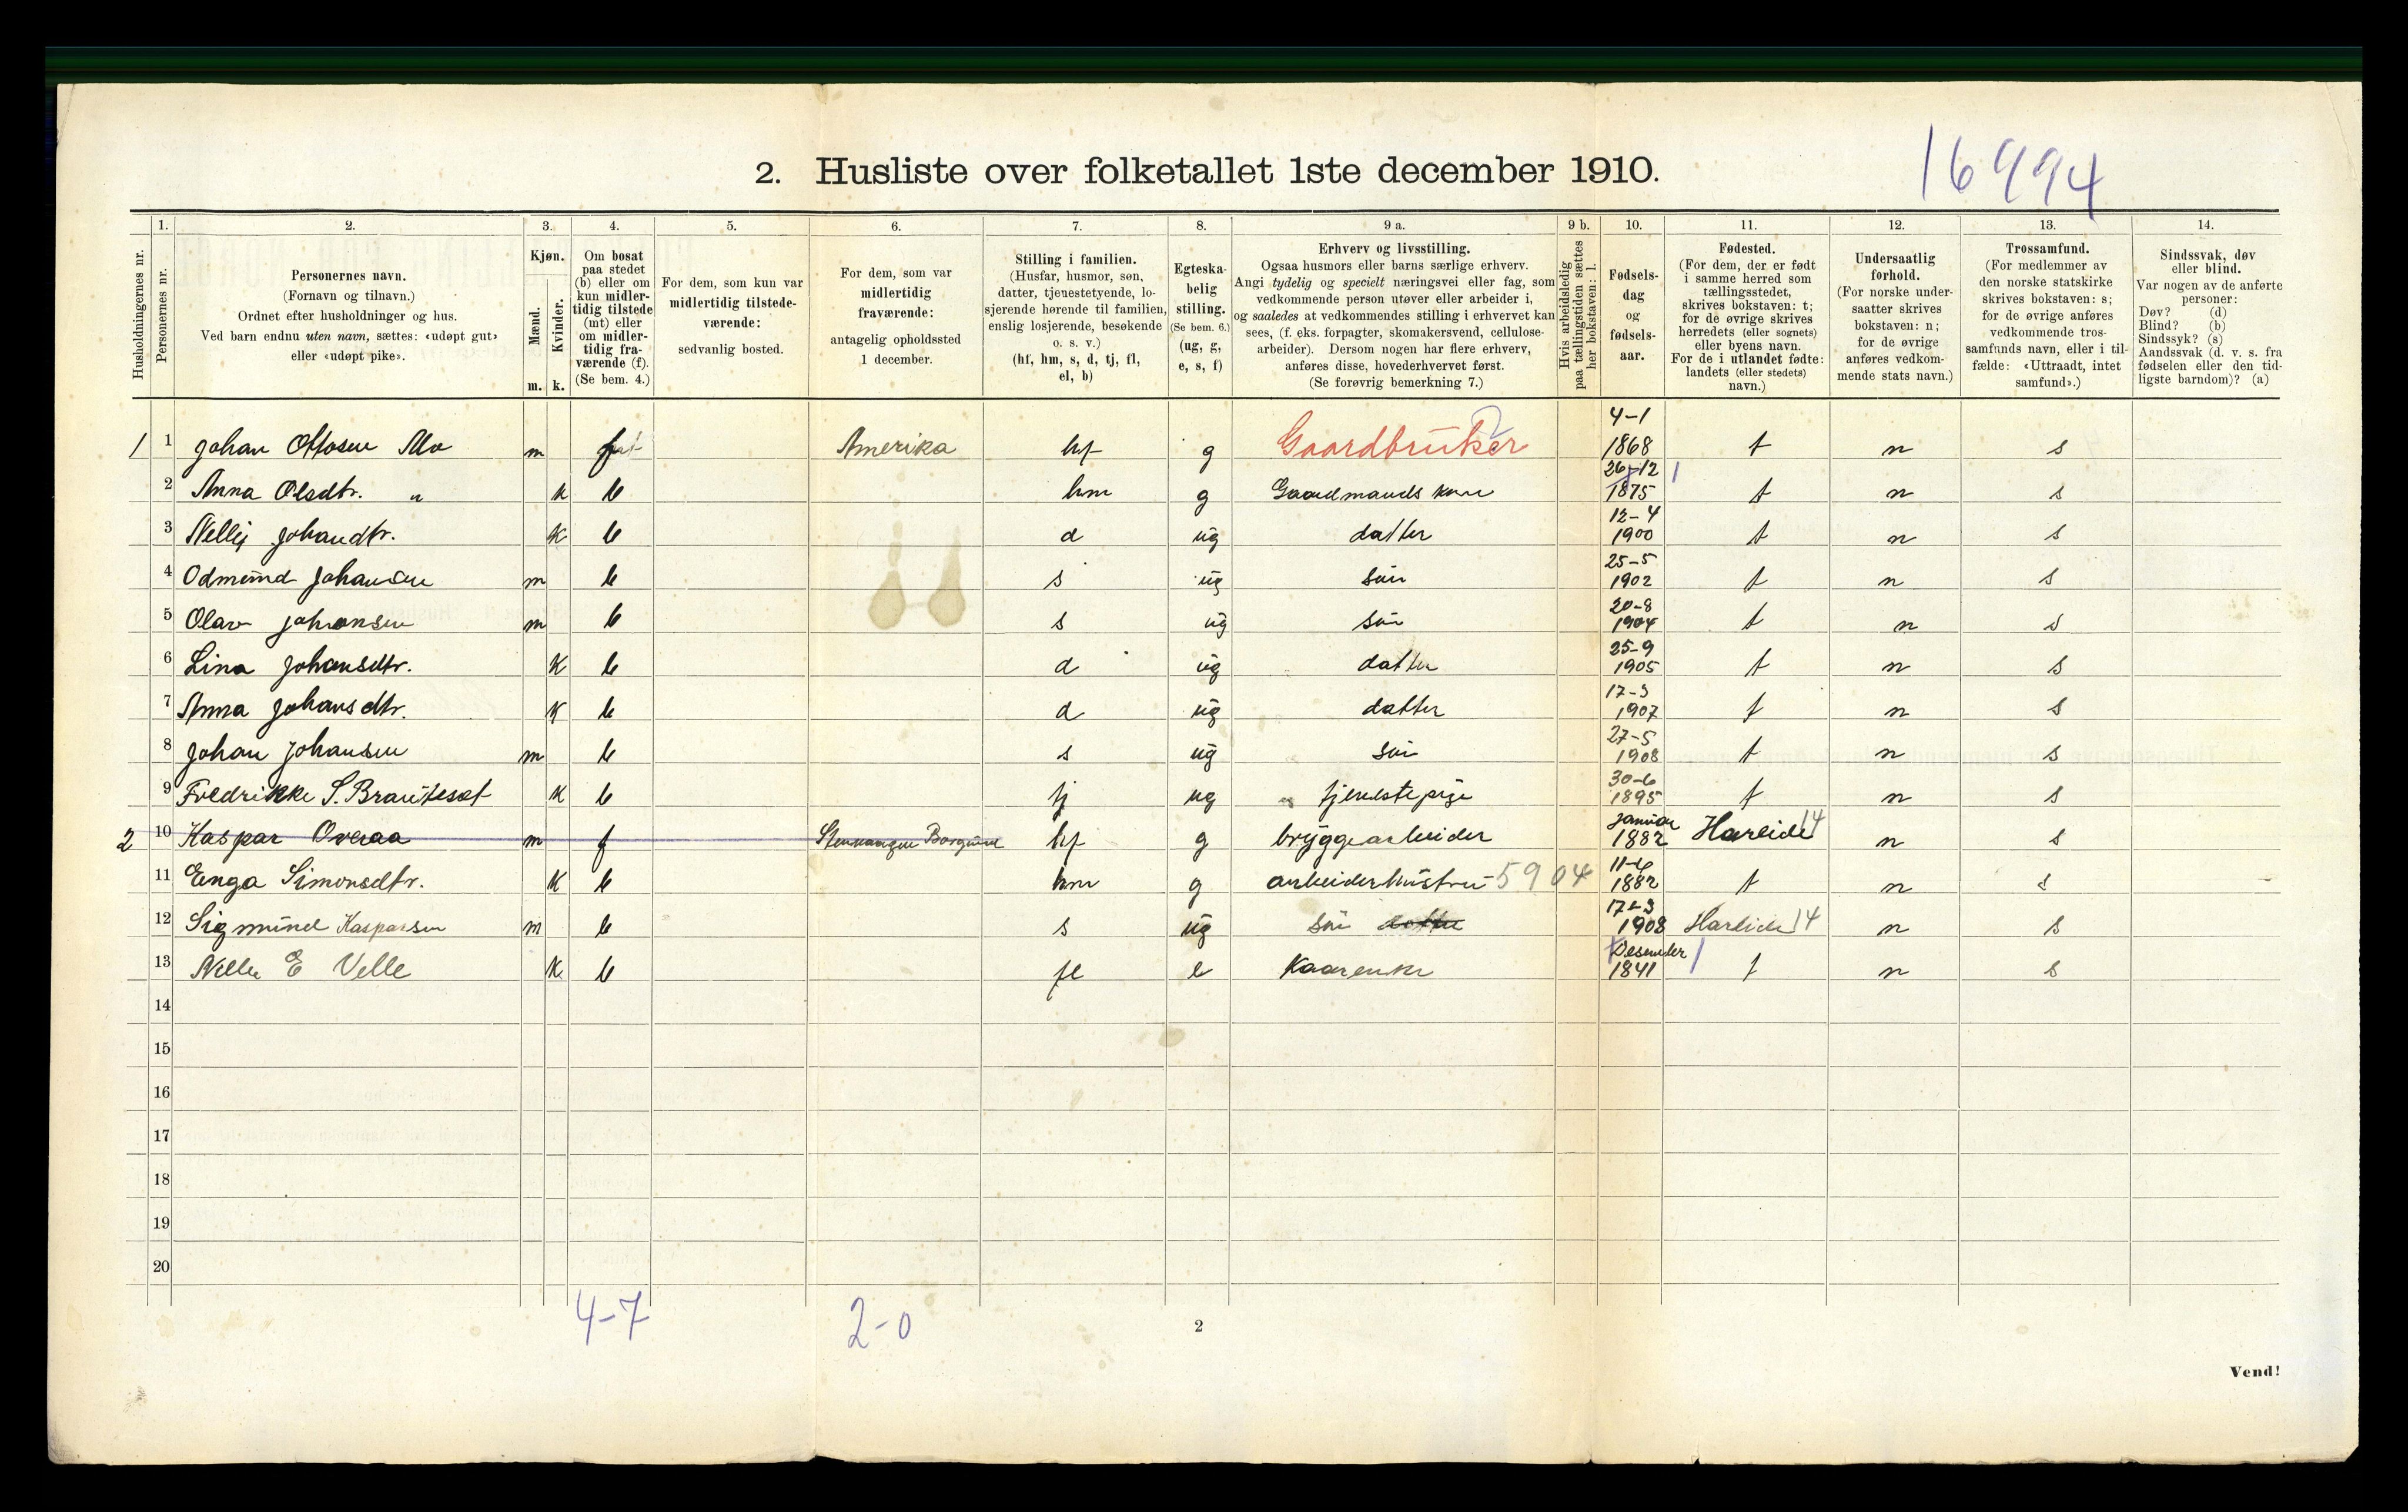 2. Husliste over folketallet 1ste december 1910.
16994
Husholdningernes nr.
1.
Personernes nr.
2.
Personernes navn.
(Fornavn og tilnavn.)
Ordnet efter husholdninger og hus.
Ved barn endnu uten navn, sættes: «udøpt gut»
eller «udøpt pike».
3.
Kjøn.
Mænd.
Kvinder.
m. k.
4.
Om bosat
paa stedet
(b) eller om
kun midler-
tidig tilstede
(mt) eller
om midler-
tidig fra-
værende (f).
(Se bem. 4.)
5.
For dem, som kun var
midlertidig tilstede-
værende:
sedvanlig bosted.
6.
For dem, som var
midlertidig
fraværende:
antagelig opholdssted
1 december.
7.
Stilling i familien.
(Husfar, husmor, søn,
datter, tjenestetyende, lo-
sjerende hørende til familien,
enslig losjerende, besøkende
o. s. v.)
(hf, hm, s, d, tj, fl,
el, b)
8.
Egteska-
belig
stilling.
(Se bem. 6.)
(ug, g,
e, s, f)
9 a.
Erhverv og livsstilling.
Ogsaa husmors eller barns særlige erhverv.
Angi tydelig og specielt næringsvei eller fag, som
vedkommende person utøver eller arbeider i,
og saaledes at vedkommendes stilling i erhvervet kan
sees, (f. eks. forpagter, skomakersvend, cellulose-
arbeider). Dersom nogen har flere erhverv,
anføres disse, hovederhvervet først.
(Se forøvrig bemerkning 7.)
9 b.
Hvis arbeidsledig
paa tællingstiden sættes
her bokstaven: l.
10.
Fødsels-
dag
og
fødsels-
aar.
11.
Fødested.
(For dem, der er født
i samme herred som
tællingsstedet,
skrives bokstaven: t;
for de øvrige skrives
herredets (eller sognets)
eller byens navn.
For de i utlandet fødte:
landets (eller stedets)
navn.)
12.
Undersaatlig
forhold.
(For norske under-
saatter skrives
bokstaven: n;
for de øvrige
anføres vedkom-
mende stats navn.)
13.
Trossamfund.
(For medlemmer av
den norske statskirke
skrives bokstaven: s;
for de øvrige anføres
vedkommende tros-
samfunds navn, eller i til-
fælde: «Uttraadt, intet
samfund».)
14.
Sindssvak, døv
eller blind.
Var nogen av de anførte
personer:
Døv? (d)
Blind? (b)
Sindssyk? (s)
Aandssvak (d. v. s. fra
fødselen eller den tid-
ligste barndom)? (a)
1 1 Johan Ottosen Mo m f Amerika hf g Gaardbruker 4-1 1868 t n s
2 Anna Olsdtr. " k b hm g Gaardmands kone 26-12 1875 t n s
3 Nellij Johandtr. k b d ug datter 12-4 1900 t n s
4 Odmund Johansen m b s ug søn 25-5 1902 t n s
5 Olav Johansen m b s ug søn 20-8 1904 t n s
6 Lina Johansdtr. k b d ug datter 25-9 1905 t n s
7 Anna Johansdtr. k b d ug datter 17-3 1907 t n s
8 Johan Johansen m b s ug søn 27-5 1908 t n s
9 Fredrikke S. Brauteset k b tj ug tjenestepige 30-6 1895 t n s
2 10 Kaspar Overaa m f Borgund hf g bryggearbeider Januar 1882 Hareide 14 n s
11 Enga Simonsdtr. k b hm g arbeiderhustru 5904 11-6 1882 t n s
12 Sigmund Kasparsen m b s ug søn datter 17-3 1908 Hareide 14 n s
13 Nelle E Velle k b fl e Kaarenke Desember 1841 t n s
14
15
16
17
18
19
20
4-7
2-0
2
Vend!